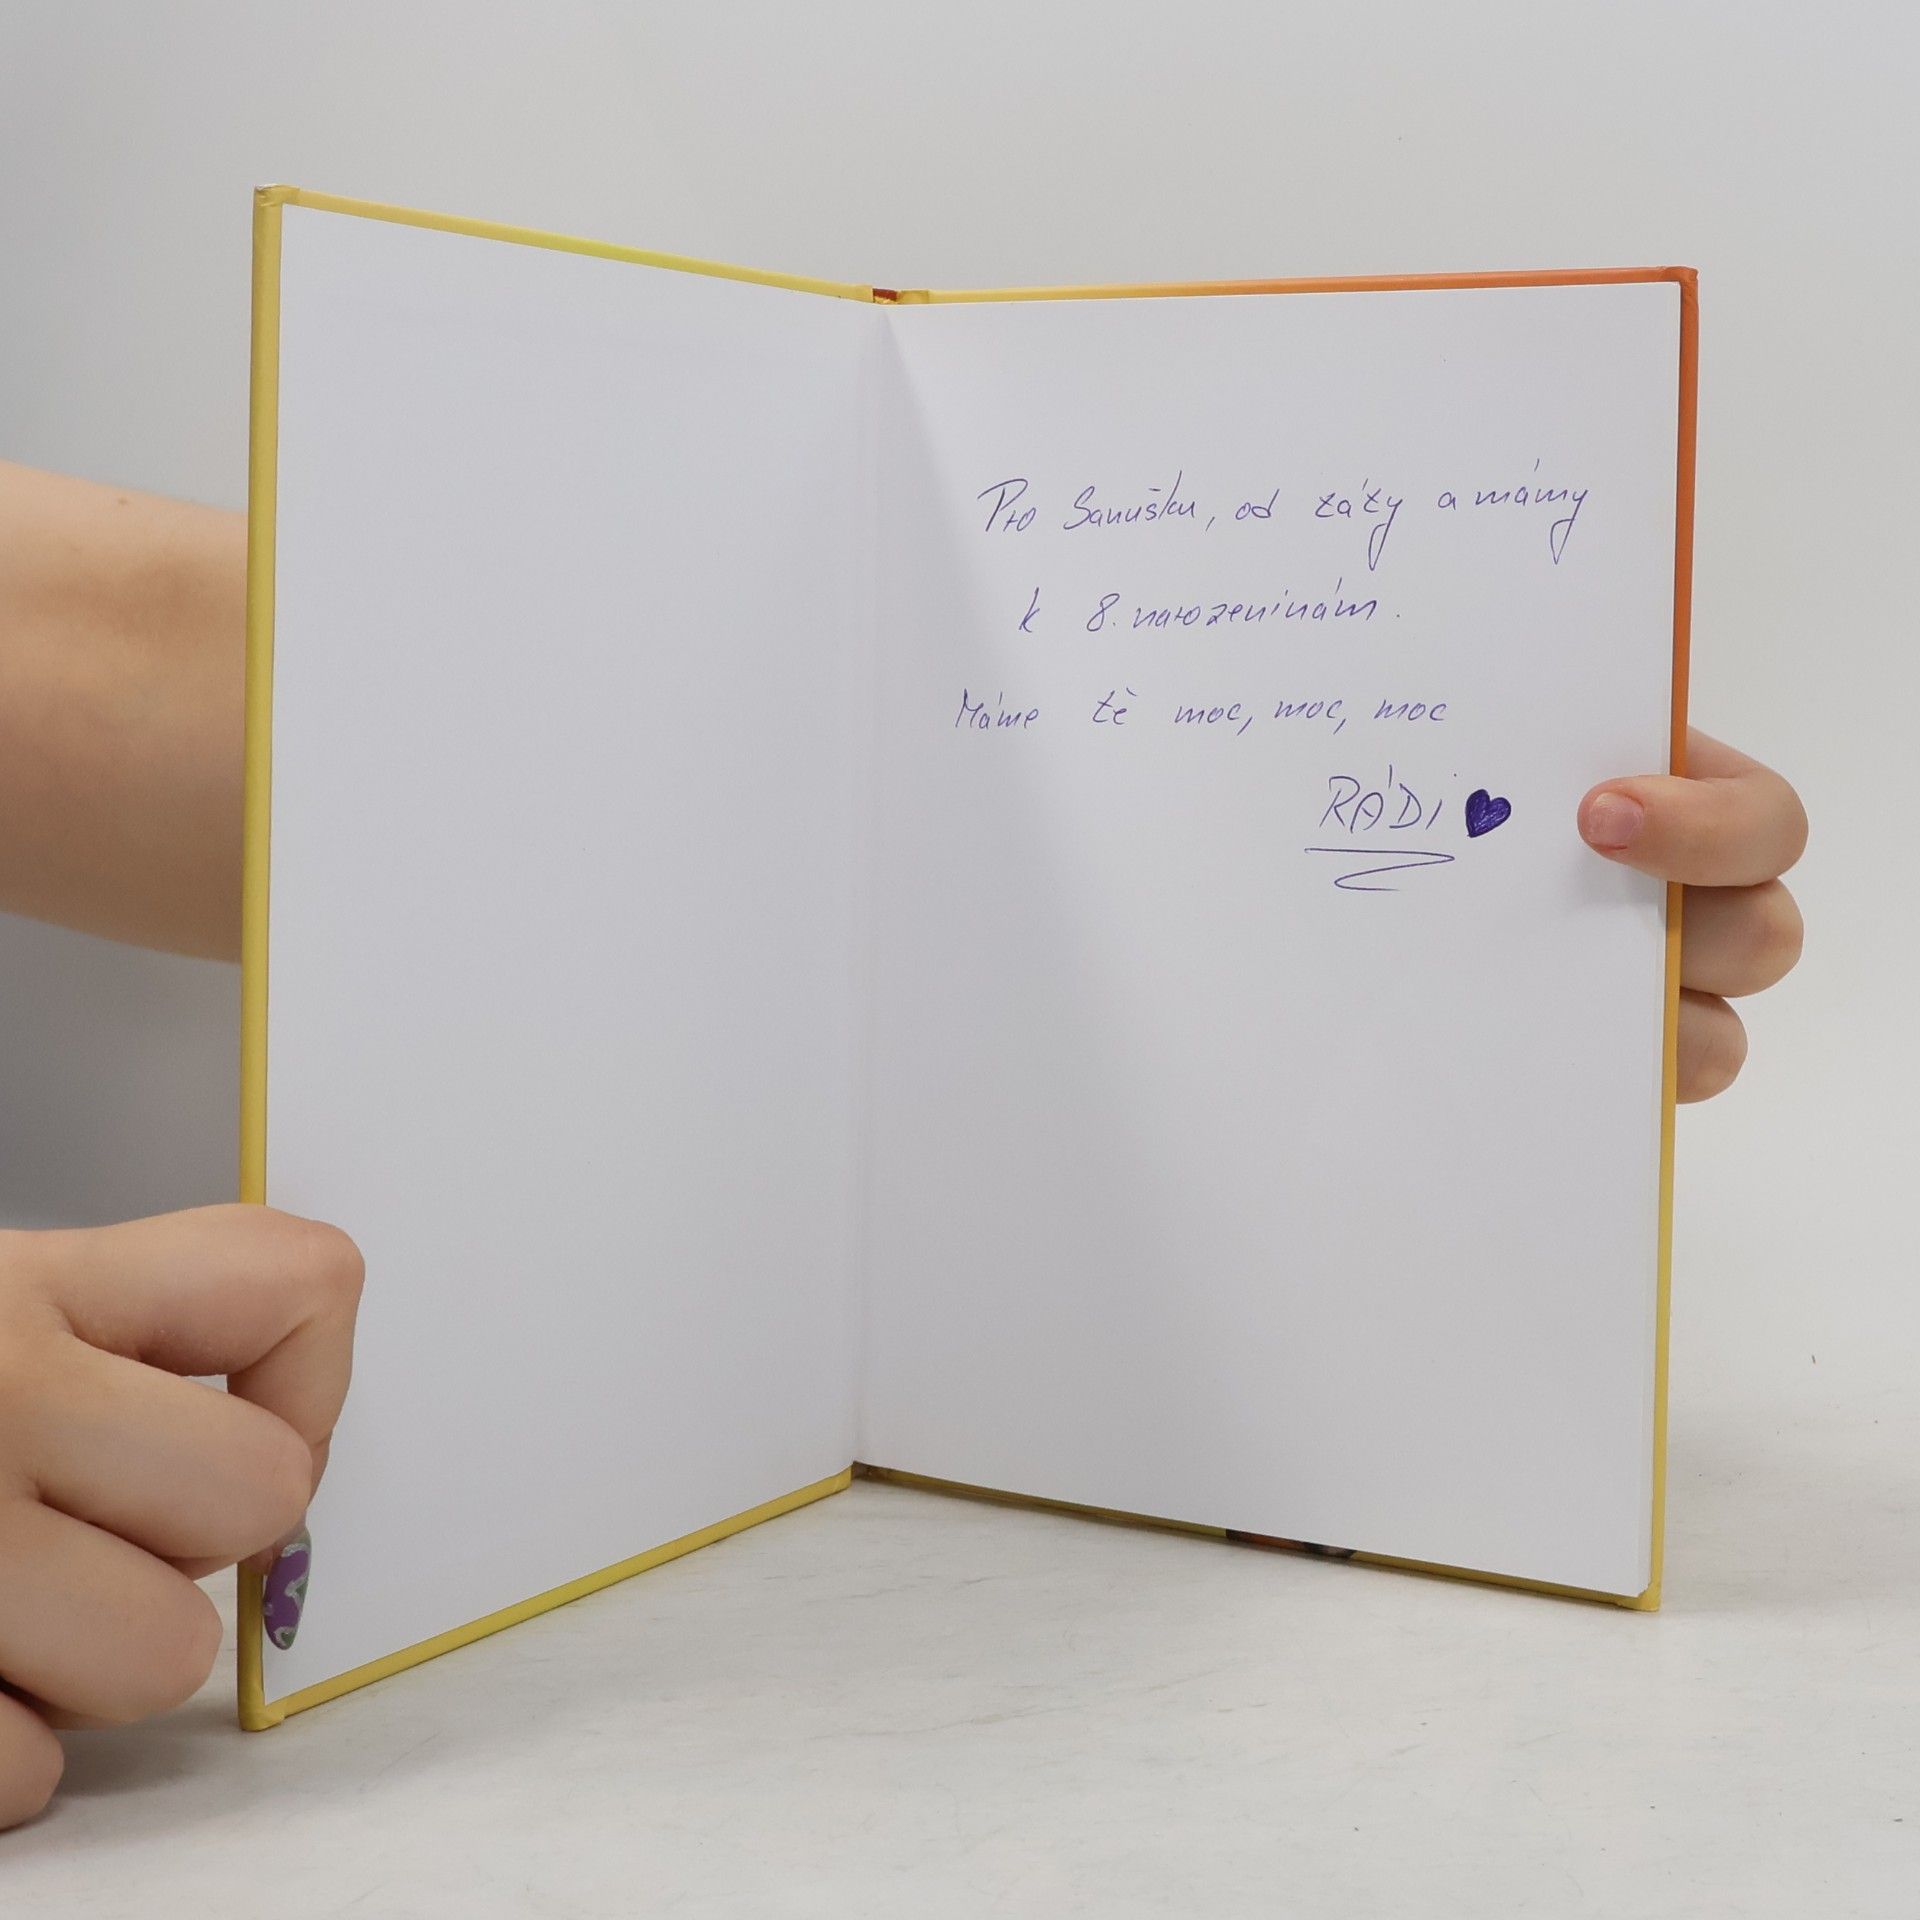 Pro Sanušku, od táty a mámy
k 8. narozeninám.
Máme tě moc, moc, moc
RÁDI